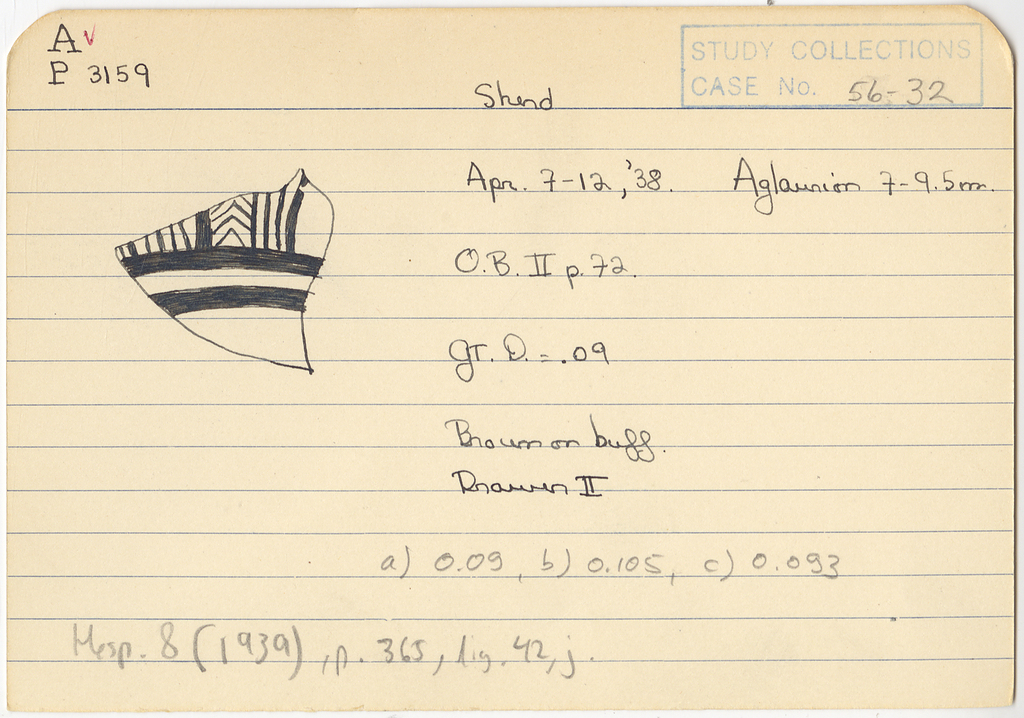 A ✓
P 3159
STUDY COLLECTIONS
CASE No. 56-32
Sherd
Apr. 7-12, '38. Aglaurion 7-9.5m.
O.B. II p. 72.
GT. D. = .09
Brown on buff.
Drawer II
a) 0.09, b) 0.105, c) 0.093
Hesp. 8 (1939), p. 365, fig. 42, j.